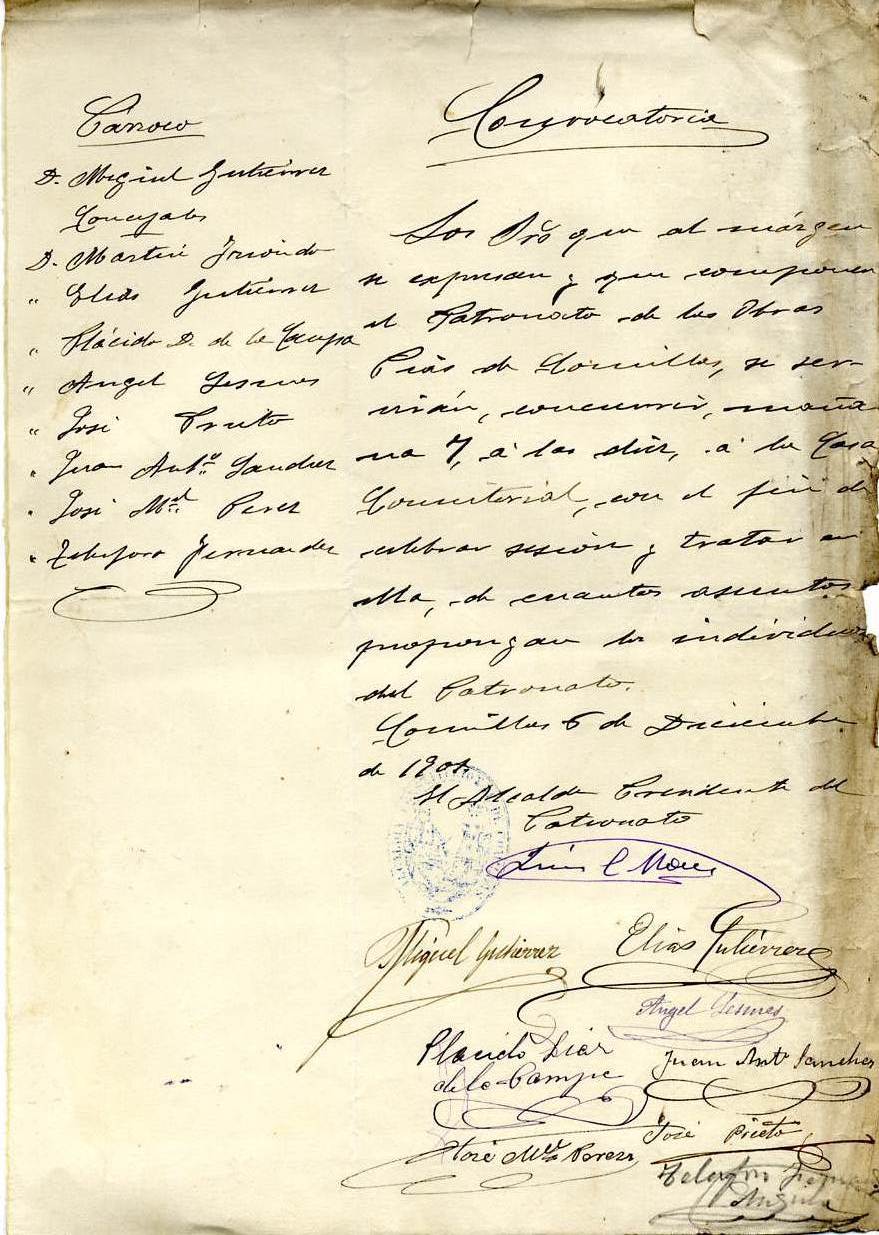 Párroco
D. Miguel Gutiérrez
Concejales
D. Martín
" Elías Gutiérrez
" Plácido D. de la Campa
" Angel Lesmes
" José Prieto
" Juan Antº Sanchez
" José Mª Perez
" Telesforo Fernandez
Convocatoria
Los Sres que al márgen
se expresan y que componen
el Patronato de las Obras
Pías de Comillas, se ser-
virán, concurrir, maña
na 7, á las diez, á la Casa
Consistorial, con el fin de
celebrar sesión y tratar en
ella, de cuantos asuntos
propongan los individuos
del Patronato.
Comillas 6 de Diciembre
de
El Alcalde Presidente del
Patronato
Miguel Gutiérrez
Elías Gutiérrez
Angel Lesmes
Placido Díaz
de la Campa
Juan Antº Sanchez
José Mª Perez
José Prieto
Telesforo